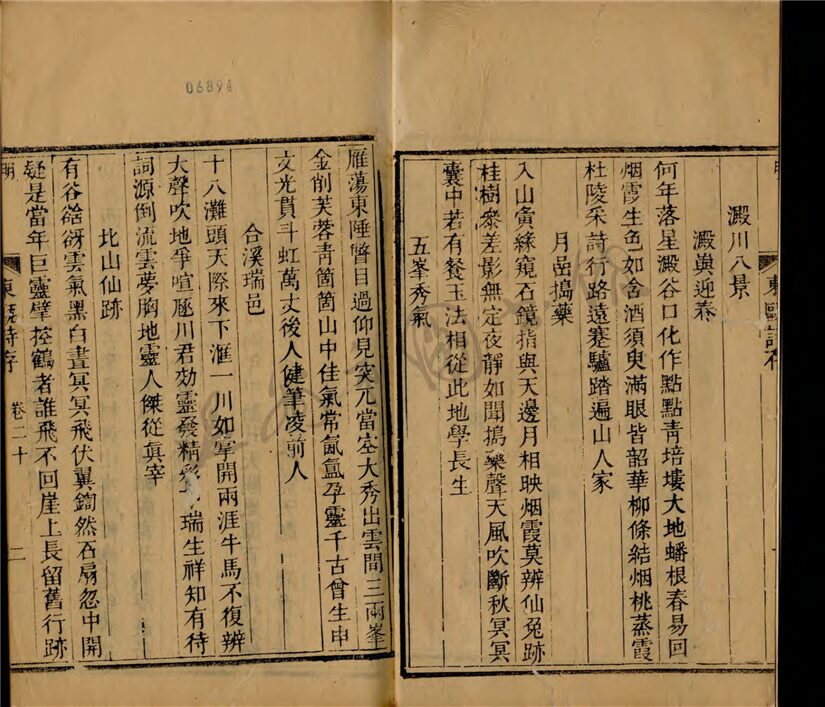 東甌詩存
澱川八景
澱輿迎春
何年落星澱谷口化作點點靑培塿大地蟠根春易回
烟霞生色如舍酒須臾滿眼皆韶華柳條結烟桃蒸霞
杜陵采詩行路遠蹇驢踏遍山人家
月嵒搗藥
入山夤緣窺石鏡指與天邊月相映烟霞莫辨仙兔跡
桂樹叅差影無定夜靜如聞搗藥聲天風吹斷秋冥冥
囊中若有餐玉法相從此地學長生
五峯秀氣
雁蕩東陲瞥目過仰見突兀當空大秀出雲間三兩峯
金削芙蓉靑箇箇山中佳氣常氤氳孕靈千古曾生申
文光貫斗虹萬丈後人健筆凌前人
合溪瑞邑
十八灘頭天際來下滙一川如掌開兩涯牛馬不復辨
大聲吹地爭喧豗川君効靈發精彩瑞生祥知有待
詞源倒流雲夢胸地靈人傑從眞宰
北山仙跡
有谷谽谺雲氣黑白晝冥冥飛伏翼鍧然石扇忽中開
疑是當年巨靈擘控鶴者誰飛不回崖上長留舊行跡
明
東甌詩存
卷二十
二
06894